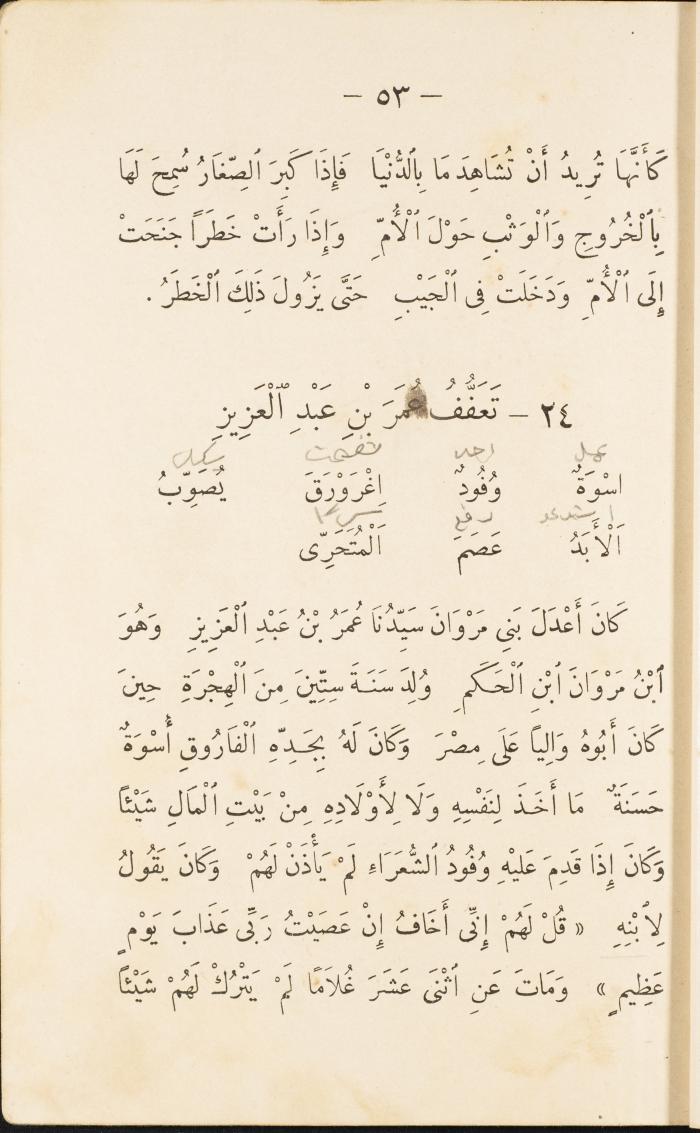 — ٥٣ —
كَأَنَّهَا تُرِيدُ أَنْ تُشَاهِدَ مَا بِٱلدُّنْيَا فَإِذَا كَبِرَ ٱلصِّغَارُ سُمِحَ لَهَا
بِٱلْخُرُوجِ وَٱلْوَثْبِ حَوْلَ ٱلْأُمِّ وَإِذَا رَأَتْ خَطَرًا جَنَحَتْ
إِلَى ٱلْأُمِّ وَدَخَلَتْ فِى ٱلْجَيْبِ حَتَّى يَزُولَ ذَلِكَ ٱلْخَطَرُ .
٢٤ — تَعَفُّفُ عُمَرَ بْنِ عَبْدِ ٱلْعَزِيزِ
اسْوَةٌ وُفُودٌ اِغْرَوْرَقَ يُصَوِّبُ
اَلْأَبَدُ عَصَمَ اَلْمُتَحَرِّى
كَانَ أَعْدَلَ بَنِي مَرْوَانَ سَيِّدُنَا عُمَرُ بْنُ عَبْدِ ٱلْعَزِيزِ وَهُوَ
ٱبْنُ مَرْوَانَ ٱبْنِ ٱلْحَكَمِ وُلِدَ سَنَةَ سِتِّينَ مِنَ ٱلْهِجْرَةِ حِينَ
كَانَ أَبُوهُ وَالِيًا عَلَى مِصْرَ وَكَانَ لَهُ بِجَدِّهِ ٱلْفَارُوقِ أُسْوَةٌ
حَسَنَةٌ مَا أَخَذَ لِنَفْسِهِ وَلَا لِأَوْلَادِهِ مِنْ بَيْتِ ٱلْمَالِ شَيْئًا
وَكَانَ إِذَا قَدِمَ عَلَيْهِ وُفُودُ ٱلشُّعَرَاءِ لَمْ يَأْذَنْ لَهُمْ وَكَانَ يَقُولُ
لِٱبْنِهِ « قُلْ لَهُمْ إِنِّى أَخَافُ إِنْ عَصَيْتُ رَبِّى عَذَابَ يَوْمٍ
عَظِيمٍ » وَمَاتَ عَنِ ٱثْنَىْ عَشَرَ غُلَامًا لَمْ يَتْرُكْ لَهُمْ شَيْئًا